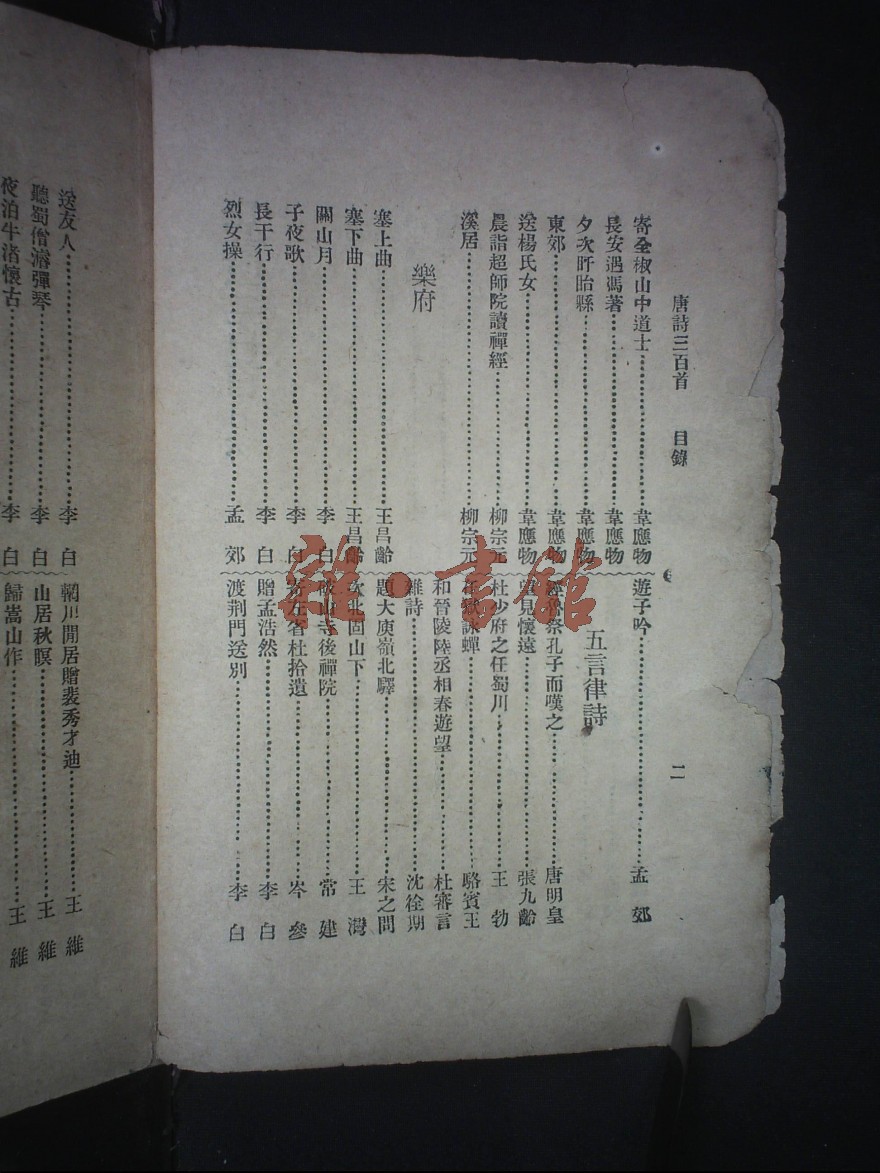 唐詩三百首 目錄 二
寄全椒山中道士……韋應物
長安遇馮著……韋應物
夕次盱眙縣……韋應物
東郊……韋應物
送楊氏女……韋應物
晨詣超師院讀禪經……柳宗元
溪居……柳宗元
樂府
塞上曲……王昌齡
塞下曲……王昌齡
關山月……李白
子夜歌……李白
長干行……李白
烈女操……孟郊
遊子吟……孟郊
五言律詩
經魯祭孔子而嘆之……唐明皇
望見懷遠……張九齡
杜少府之任蜀川……王勃
在獄詠蟬……駱賓王
和晉陵陸丞相春遊望……杜審言
雜詩……沈佺期
題大庾嶺北驛……宋之問
次北固山下……王灣
破山寺後禪院……常建
寄左省杜拾遺……岑參
贈孟浩然……李白
渡荆門送別……李白
送友人……李白
聽蜀僧濬彈琴……李白
夜泊牛渚懷古……李白
輞川閒居贈裴秀才迪……王維
山居秋暝……王維
歸嵩山作……王維
雜·書館